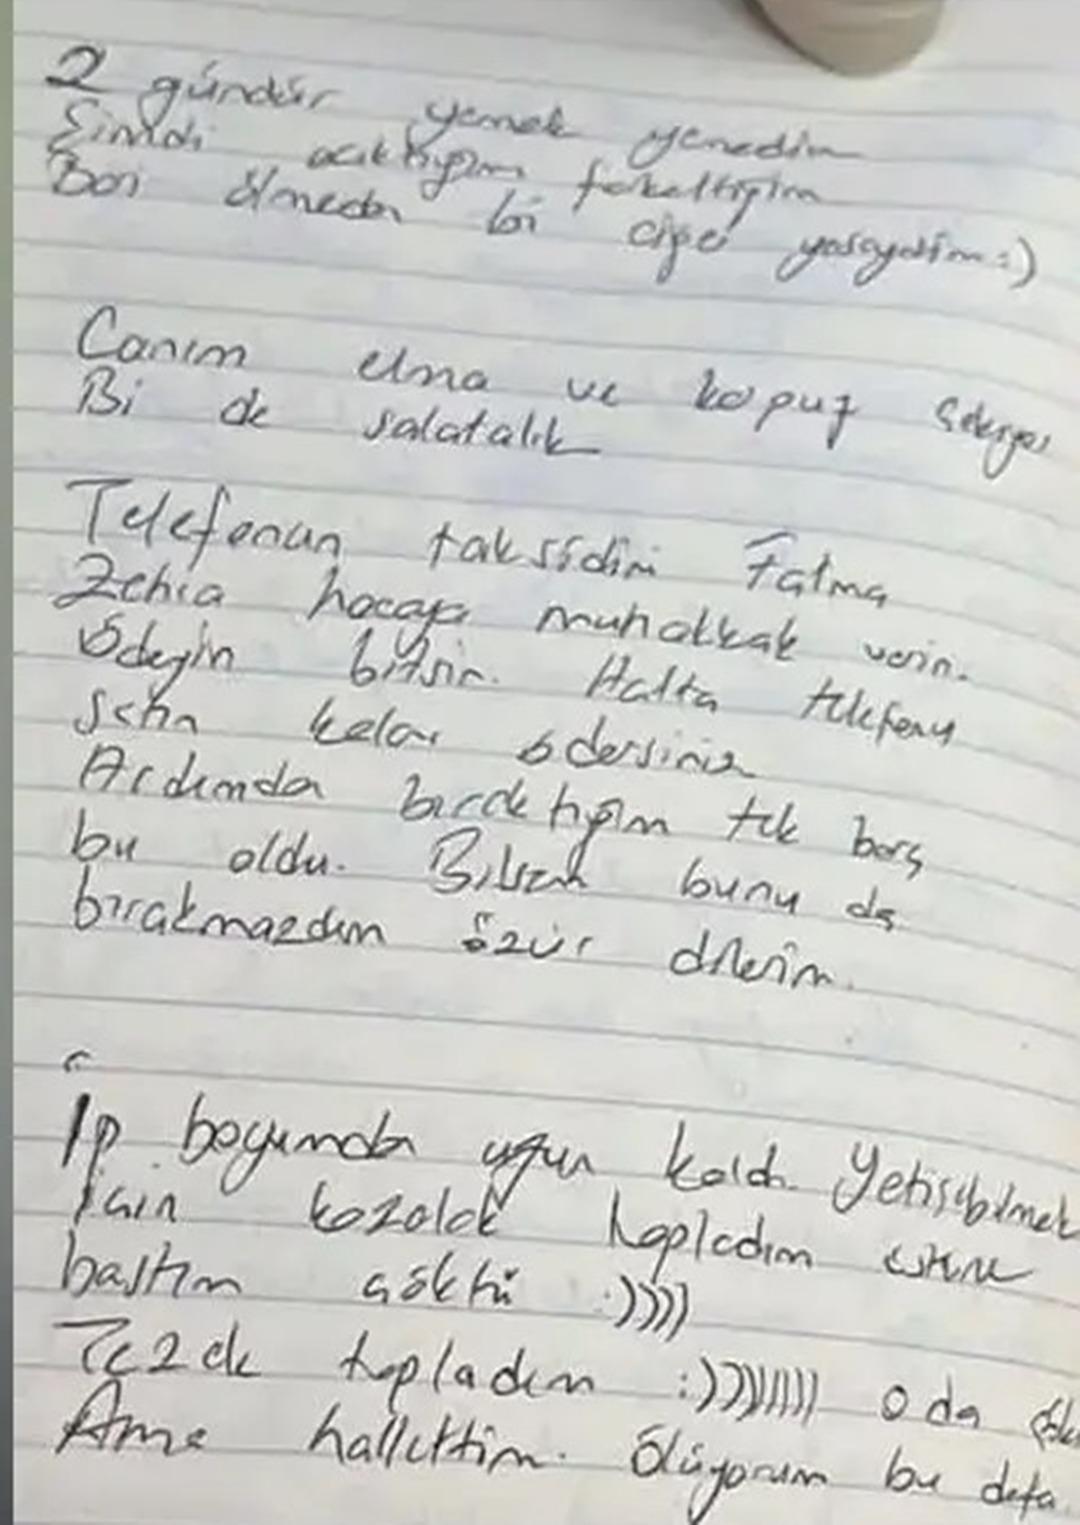 2 gündür yemek yemedim
Şimdi acıktığım farkettiğim
Bari ölmeden bi çiğei yasaydım :)
Canım elma ve kapuz çekiyor
Bi de salatalık
Telefonun taksidini Fatma
Zehra hocaya muhakkak verin.
Ödeyin bitsin. Hatta telefonu
satın kalar ödersiniz
Ardımda bıraktığım tek borç
bu oldu. Bilsem bunu da
bırakmazdım özür dilerim.
İp boyumdan uzun kaldı. Yetişebilmek
için kozalak topladım üstüne
bastım çöktü :))))
Tezek topladım :))))))))) o da
Ama hallettim. Ölüyorum bu defa.